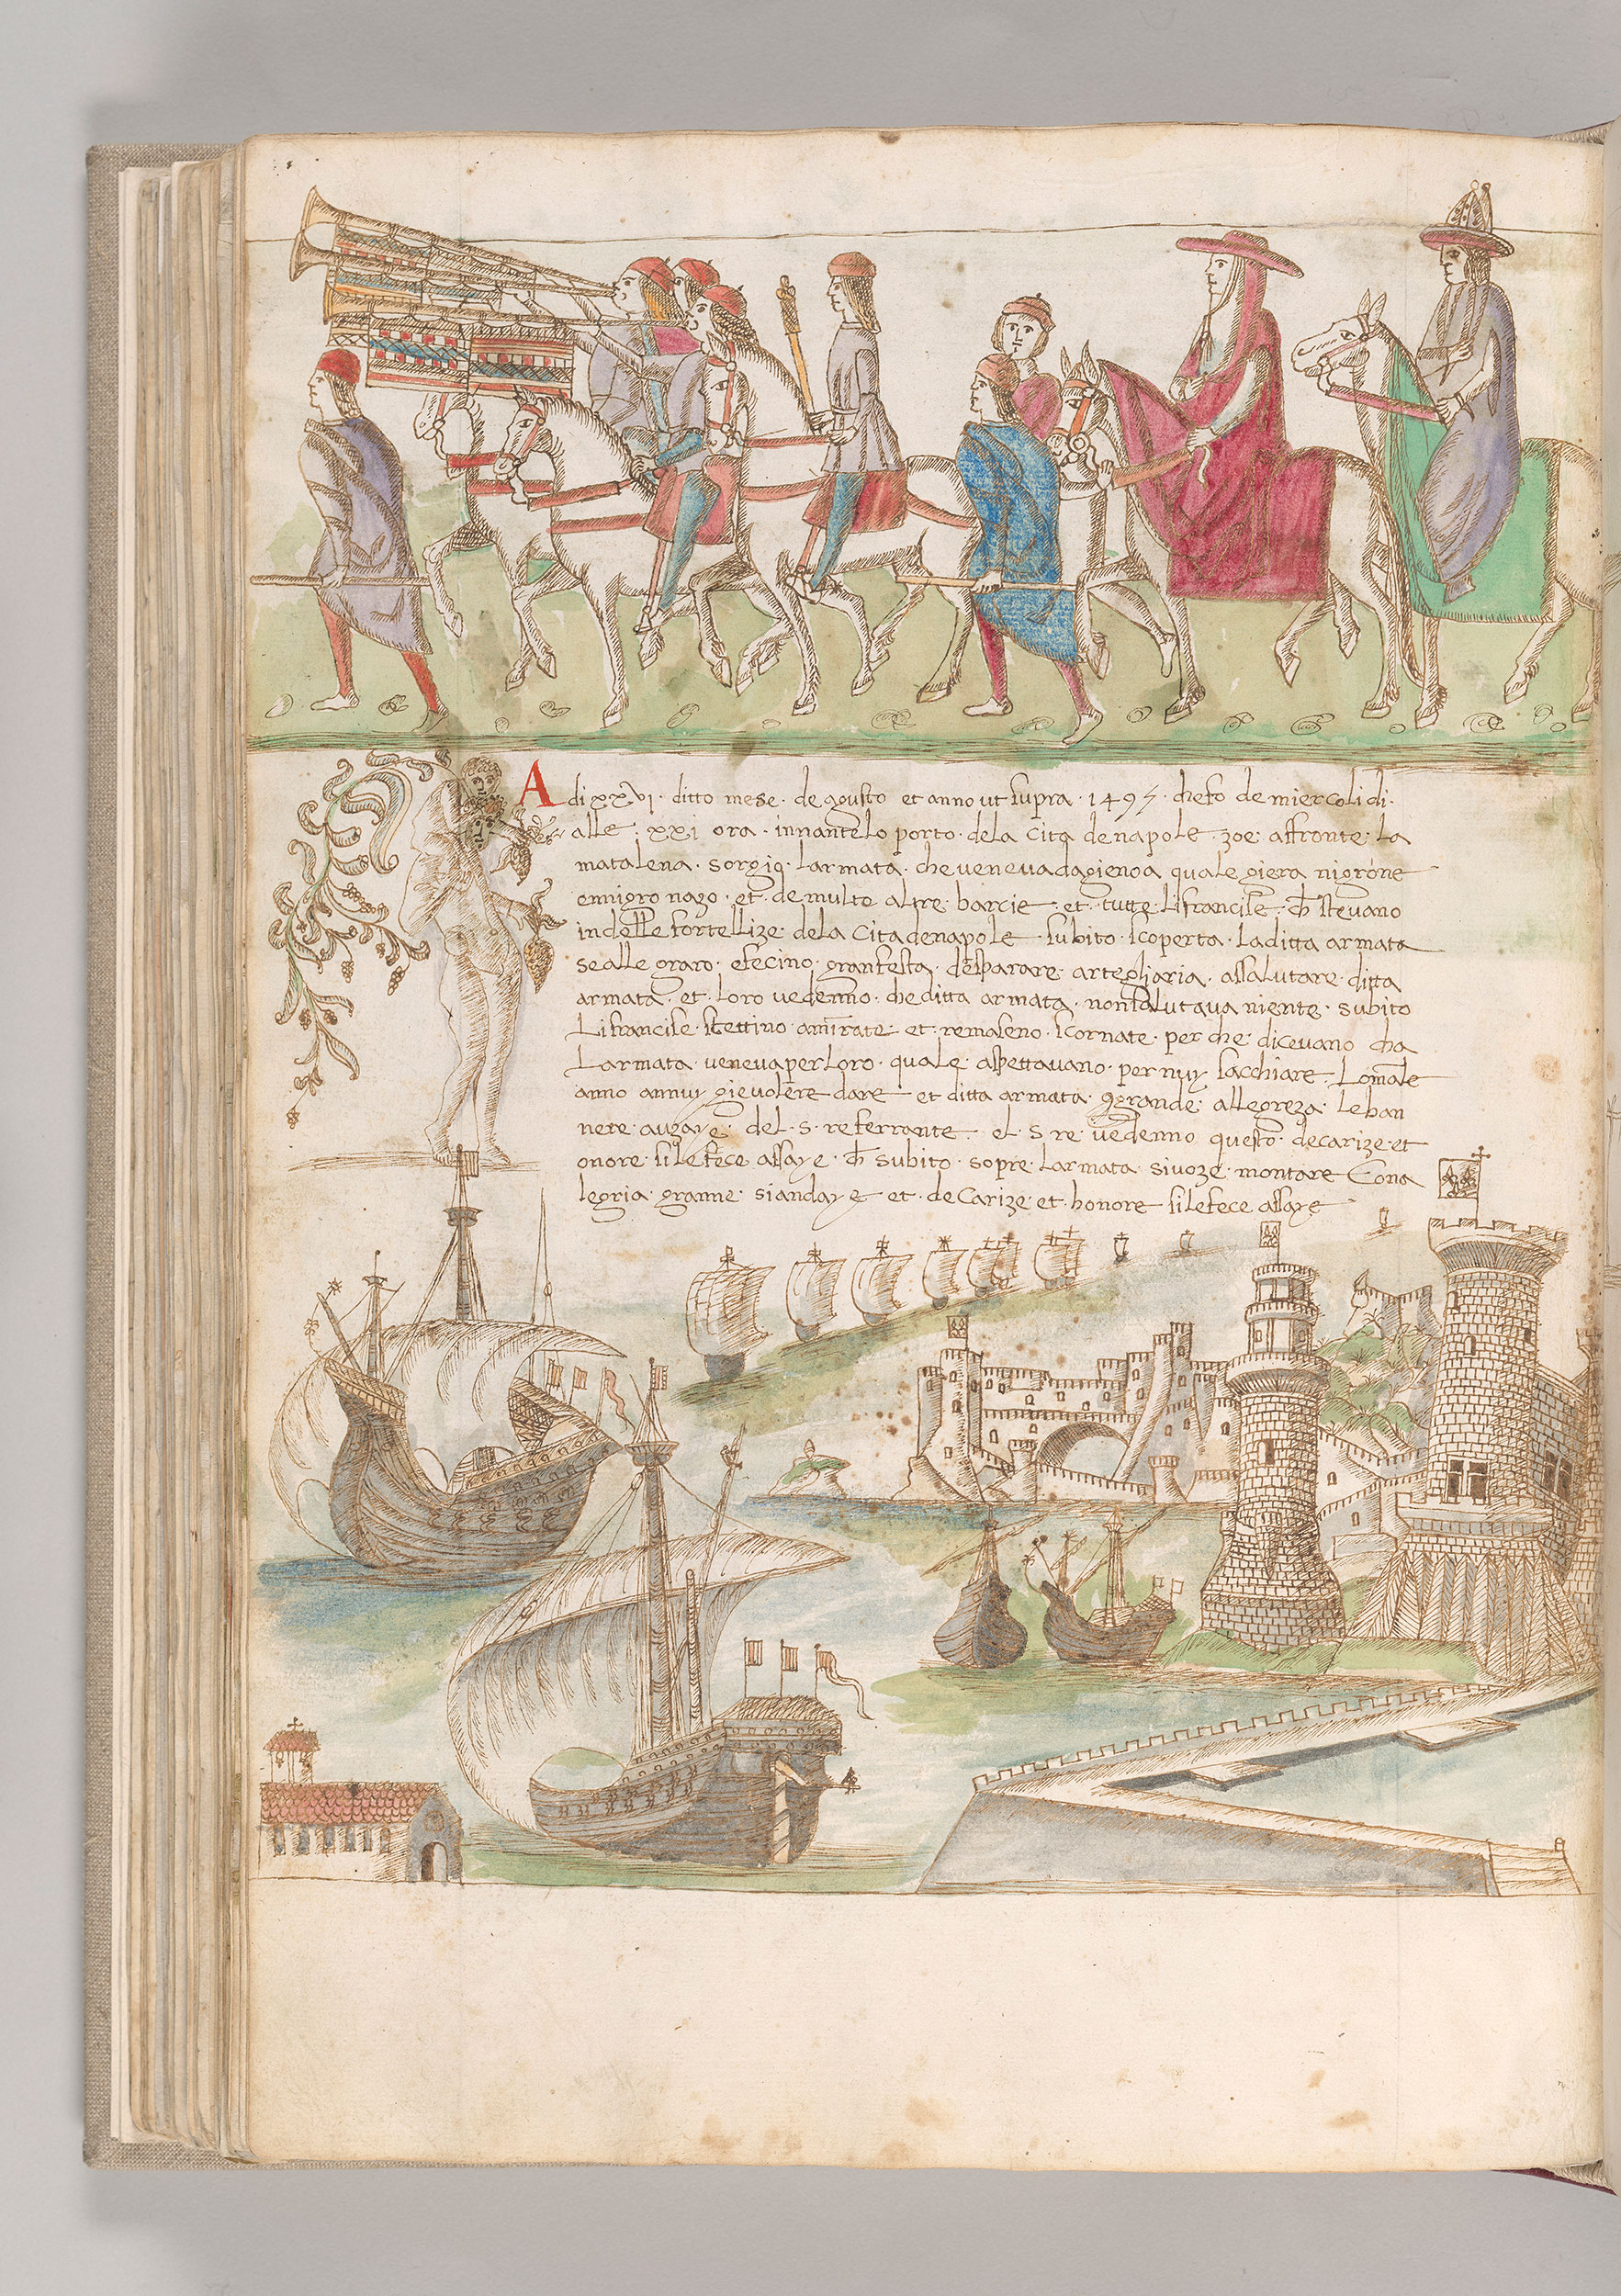 A di xxvi · ditto mese · de agusto et anno ut supra · 1495 · che fo de miercoli di ·
alle · xxi ora · innante lo porto · dela cita de napole · zoe · affronte · la
matalena · sorgio · larmata · che veneva da gienoa quale giera nigrone
emigro nazo · et · de multe altre · barcie · et · tutte · li francise · ch̄ stevano
in delle fortellize · dela Cita de napole · subito · scoperta · la ditta armata
se alle graro · e fecino · gran festa · de sparare · artegliaria · assalutare · ditta
armata · et · loro vedenno · che ditta armata · non salutava niente · subito
Li francise · stettino · amirate · et · remaseno · scornate · per che · dicevano cha
Larmata · veneva per loro · quale · aspettavano · per nuy sacchiare · Lomale
anno annuy gie volere dare et ditta armata · 9grande · allegreza · le ban
nere · auzaye · del · s · re ferrante · el · s re · vedenno questo · de carize · et
onore · si le fece assaye · ch̄ subito · sopre · larmata · si voze · montare Cona
legria · granne · si andaye et · de Carize · et · honore si le fece assaye